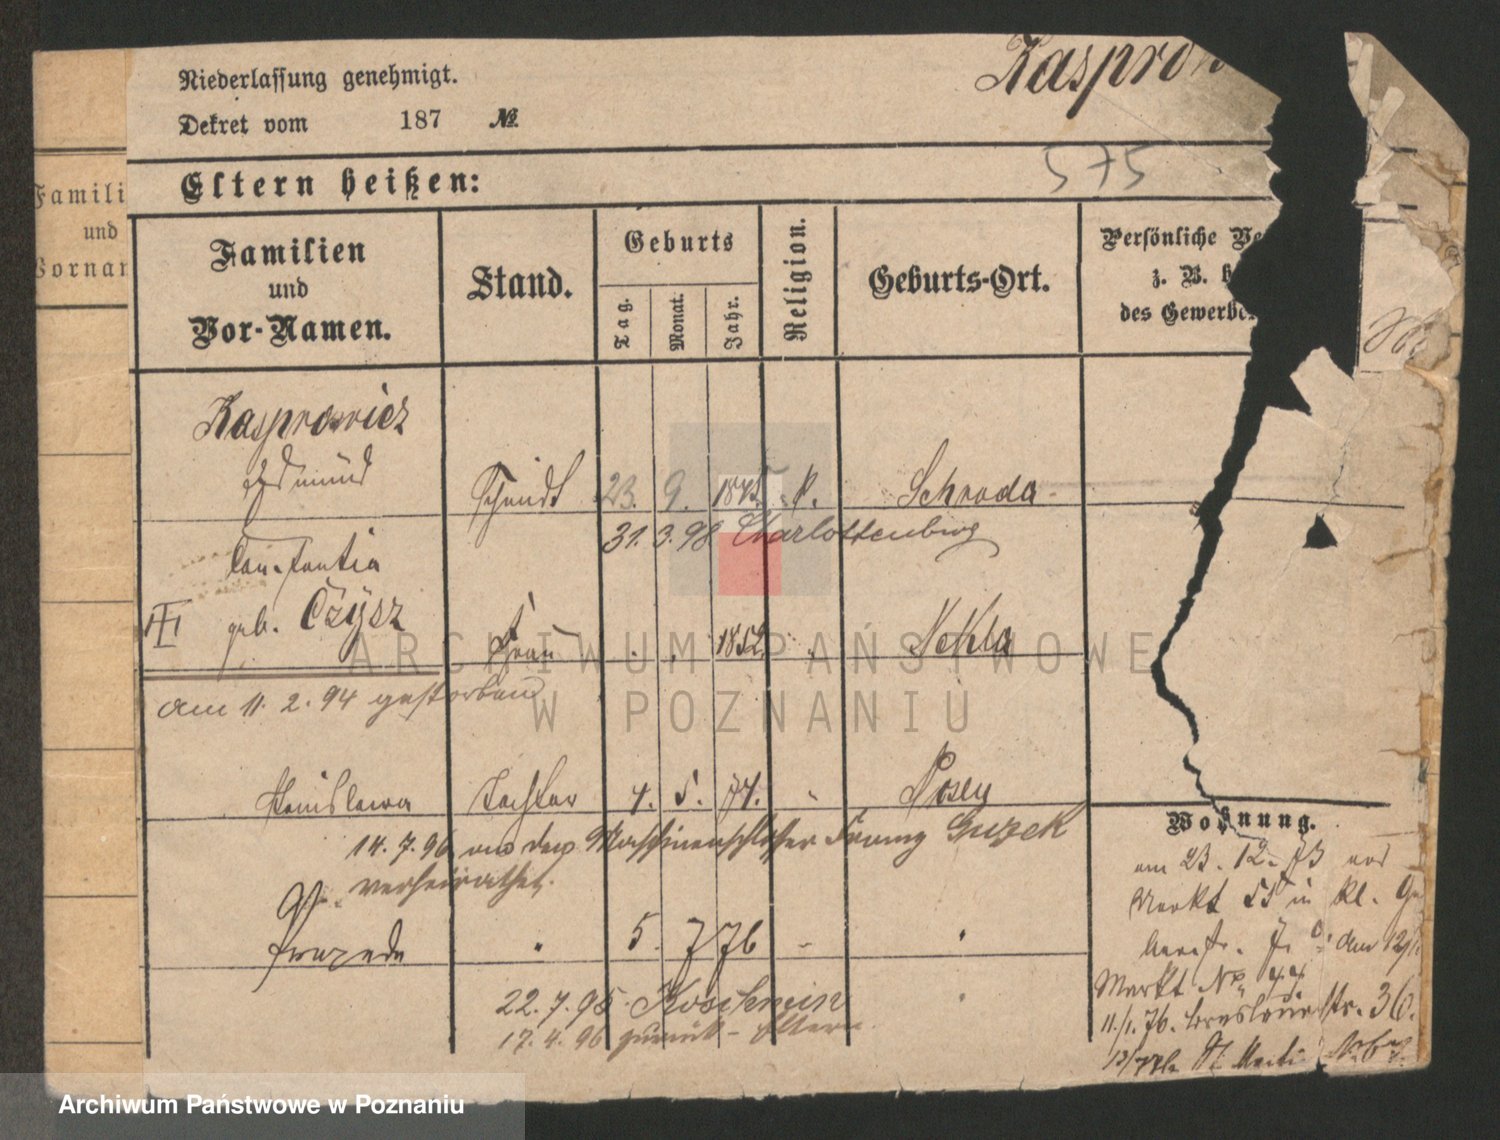 Niederlassung genehmigt.
Dekret vom 187 №
Kasprow
575
Eltern heißen:
Famili
und
Vornam
Familien
und
Vor-Namen.
Stand.
Geburts
Tag.
Monat.
Jahr.
Religion.
Geburts-Ort.
Persönliche Ve
z. B. h
des Gewerbe
Kasprowicz
Edmund
23. 9. 1845 k. Schroda
31. 3. 98 Charlottenburg
Constantia
geb. Czysz
Frau 1852 " Nekla
am 11. 2. 94 gestorben
Stanislawa Tochter 4. 5. 74. Posen
14. 7. 96 an den Maschinenschlosser Franz Guzek
verheirathet.
Praxeda " 5. 7 76
22. 7. 95 Koschmin
17. 4. 96 zurück - Eltern
Wohnung.
am 23. 12. 73 von
Markt 55 in kl. Ge
am 12/
Markt No 44
11/1. 76. Breslauerstr. 36.
St. Martin
ARCHIWUM PAŃSTWOWE
W POZNANIU
Archiwum Państwowe w Poznaniu